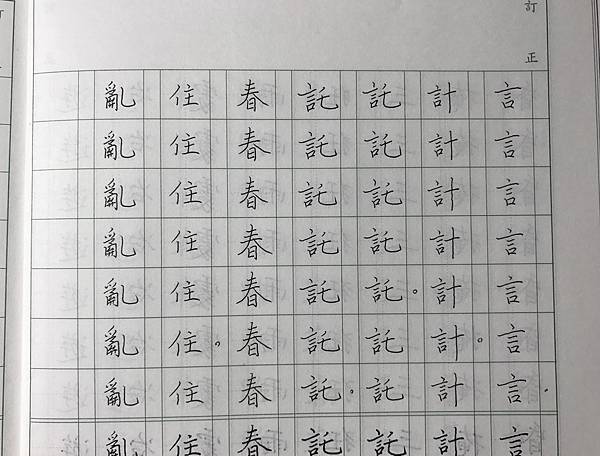 訂正
言言言言言言言言
計計計計計計計計
託託託託託託託託
託託託託託託託託
春春春春春春春春
住住住住住住住住
亂亂亂亂亂亂亂亂